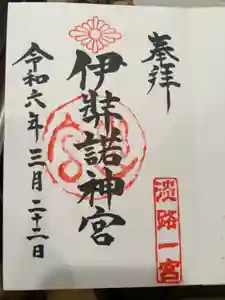 奉拝
淡路一宮
伊弉諾神宮
令和六年三月二十二日